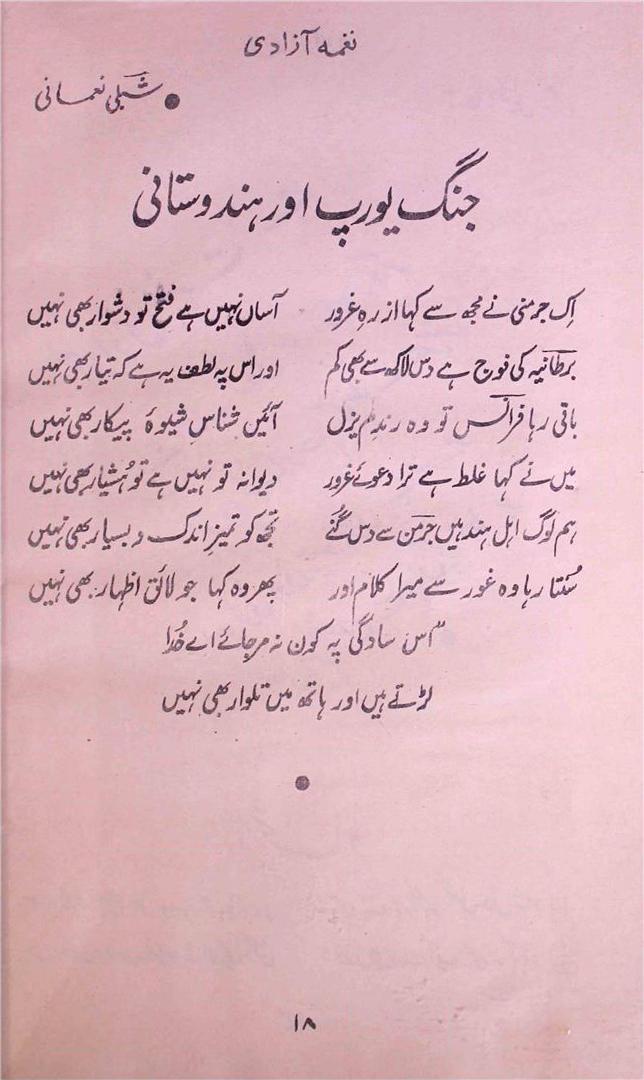 نغمہ آزادی
● شبلی نعمانی
جنگ یورپ اور ہندوستانی
اِک جرمنی نے مجھ سے کہا از رہِ غرور آساں نہیں ہے فتح تو دشوار بھی نہیں
برطانیہ کی فوج ہے دس لاکھ سے بھی کم اور اس پہ لطف یہ ہے کہ تیار بھی نہیں
باقی رہا فرانس تو وہ رندِ لم یزل آئیں شناس شیوۂ پیکار بھی نہیں
میں نے کہا غلط ہے ترا دعوئے غرور دیوانہ تو نہیں ہے تو ہُشیار بھی نہیں
ہم لوگ اہل ہند ہیں جرمن سے دس گُنے تجھ کو تمیزِ اندک و بسیار بھی نہیں
سُنتا رہا وہ غور سے میرا کلام اور پھر وہ کہا جو لائق اظہار بھی نہیں
"اس سادگی پہ کون نہ مر جائے اے خُدا
لڑتے ہیں اور ہاتھ میں تلوار بھی نہیں
۱۸